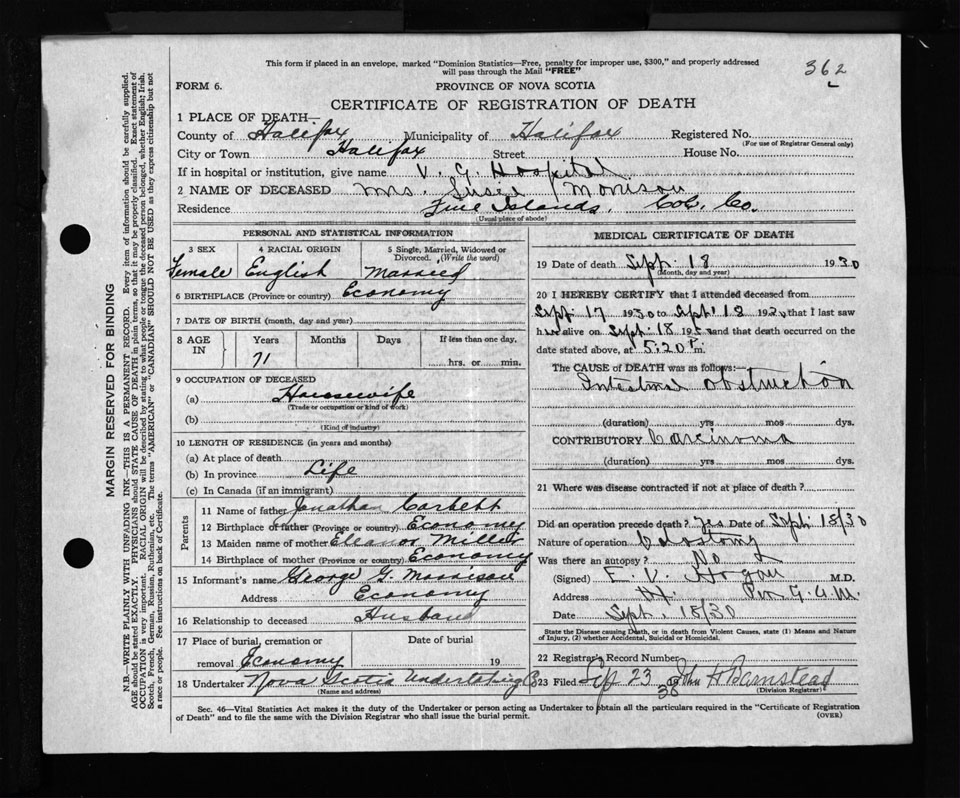 This form if placed in an envelope, marked "Dominion Statistics—Free, penalty for improper use, $300," and properly addressed
will pass through the Mail "FREE"
362
FORM 6.
PROVINCE OF NOVA SCOTIA
CERTIFICATE OF REGISTRATION OF DEATH
1 PLACE OF DEATH—
County of Halifax Municipality of Halifax Registered No.
(For use of Registrar General only)
City or Town Halifax Street House No.
If in hospital or institution, give name V. G. Hospital
2 NAME OF DECEASED Mrs. Susie Morrison
Residence Five Islands, Col. Co.
(Usual place of abode)
PERSONAL AND STATISTICAL INFORMATION
3 SEX 4 RACIAL ORIGIN 5 Single, Married, Widowed or Divorced. (Write the word)
Female English Married
6 BIRTHPLACE (Province or country) Economy
7 DATE OF BIRTH (month, day and year)
8 AGE IN Years Months Days If less than one day,
71 hrs. or min.
9 OCCUPATION OF DECEASED
(a) Housewife
(Trade or occupation or kind of work)
(b)
(Kind of industry)
10 LENGTH OF RESIDENCE (in years and months)
(a) At place of death
(b) In province Life
(c) In Canada (if an immigrant)
Parents
11 Name of father Jonathan Corbett
12 Birthplace of father (Province or country) Economy
13 Maiden name of mother Eleanor Miller
14 Birthplace of mother (Province or country) Economy
15 Informant's name George G. Morrison
Address Economy
16 Relationship to deceased Husband
17 Place of burial, cremation or Date of burial
removal Economy 19
18 Undertaker Nova Scotia Undertaking Co
(Name and address)
MEDICAL CERTIFICATE OF DEATH
19 Date of death Sept. 18 1930
(Month, day and year)
20 I HEREBY CERTIFY that I attended deceased from
Sept. 17 1930 to Sept. 18 192 , that I last saw
h alive on Sept. 18 19 and that death occurred on
date stated above, at 5:20 P. m.
The CAUSE OF DEATH was as follows:—
Intestinal obstruction
(duration) yrs mos dys.
CONTRIBUTORY Carcinoma
(duration) yrs mos dys.
21 Where was disease contracted if not at place of death?
Did an operation precede death? Yes Date of Sept. 18/30
Nature of operation Colostomy
Was there an autopsy? No
(Signed) E. V. Hogan M.D.
Address H. Per G. A. M.
Date Sept. 18/30
State the Disease causing Death, or in death from Violent Causes, state (1) Means and Nature
of Injury, (2) whether Accidental, Suicidal or Homicidal.
22 Registrar's Record Number 38
23 Filed Sep 23 John H Barnstead
(Division Registrar)
Sec. 46—Vital Statistics Act makes it the duty of the Undertaker or person acting as Undertaker to obtain all the particulars required in the "Certificate of Registration
of Death" and to file the same with the Division Registrar who shall issue the burial permit.
(OVER)
MARGIN RESERVED FOR BINDING
N.B.—WRITE PLAINLY WITH UNFADING INK—THIS IS A PERMANENT RECORD. Every item of information should be carefully supplied.
AGE should be stated EXACTLY. PHYSICIANS should STATE CAUSE OF DEATH in plain terms, so that it may be properly classified. Exact statement of
OCCUPATION is very important. RACIAL ORIGIN will be described by stating to what people or tongue the deceased person belonged, whether English, Irish,
Scotch, French, German, Russian, Ruthenian, etc. The terms "AMERICAN" or "CANADIAN" SHOULD NOT BE USED as they express citizenship but not
a race or people. See instructions on back of Certificate.